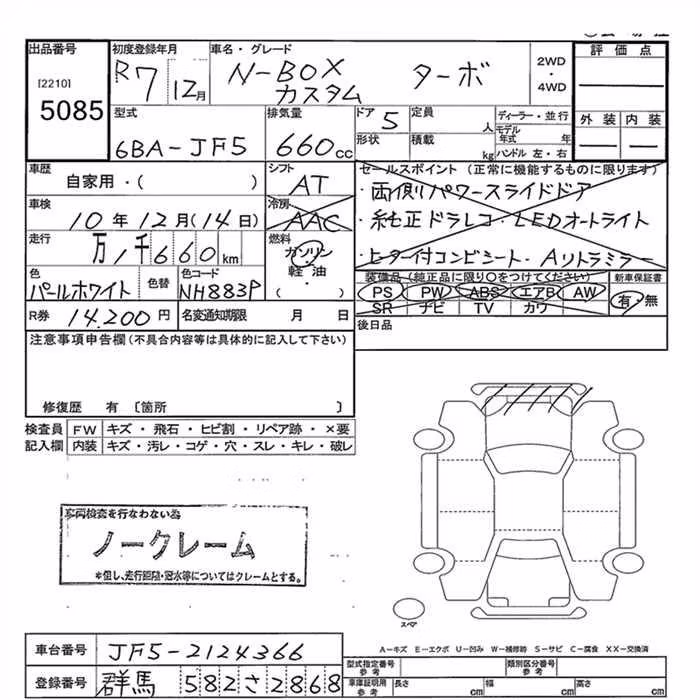 出品番号 初度登録年月 車名・グレード 2WD・4WD 評価点
[2210] R7 12月 N-BOX カスタム ターボ
5085
型式 排気量 ドア 5 定員 人 ディーラー・並行 外装 内装
6BA-JF5 660cc 形状 積載 kg モデル年式 年 ハンドル 左・右
車歴 シフト セールスポイント (正常に機能するものに限ります)
自家用・( ) AT ・両側パワースライドドア
車検 冷房 ・純正ドラレコ・LEDオートライト
10年12月(14日) AAC
走行 燃料 ・ヒーター付コンビシート・Aリトラミラー
万 1千660km ガソリン
色 色替 色コード 軽・油 装備品 (純正品に限り○をつけてください) 新車保証書
パールホワイト NH883P ( ) PS PW ABS エアB AW 有・無
SR ナビ TV カワ
R券 14,200円 名変通知期限 月 日 後日品
注意事項申告欄 (不具合内容等は具体的に記入して下さい)
修復歴 有 〔箇所 〕
検査員 FW キズ・飛石・ヒビ割・リペア跡・×要
記入欄 内装 キズ・汚レ・コゲ・穴・スレ・キレ・破レ
車両検査を行なわない為
ノークレーム
*但し、走行距離・冠水等についてはクレームとする。
スペア
A−キズ E−エクボ U−凹み W−補修跡 S−サビ C−腐食 XX−交換済
車台番号 JF5-2124366
型式指定番号 参考 類別区分番号 参考
登録番号 群馬 582さ2868
車庫証明用 参考 長さ cm 幅 cm 高さ cm